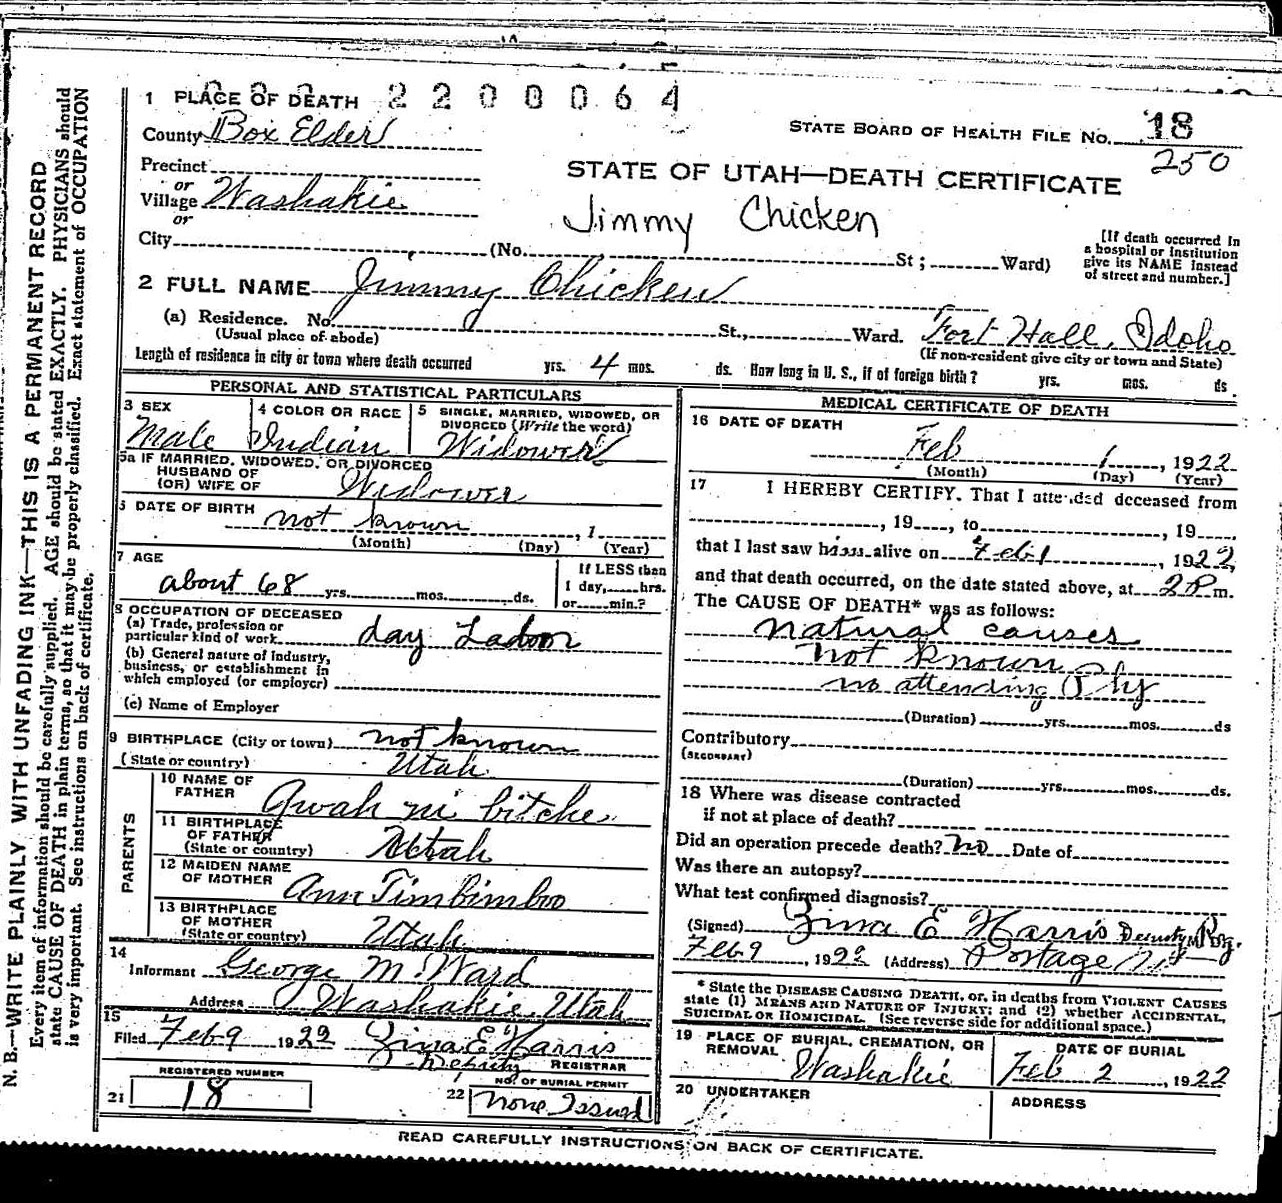 2200064
1 PLACE OF DEATH
County Box Elder
STATE BOARD OF HEALTH FILE NO. 18
250
Precinct
or
Village Washakie
or
STATE OF UTAH—DEATH CERTIFICATE
Jimmy Chicken
City (No. St; Ward)
[If death occurred in a hospital or institution give its NAME instead of street and number.]
2 FULL NAME Jimmy Chicken
(a) Residence. No. St., Ward. Fort Hall, Idaho
(Usual place of abode) (If non-resident give city or town and State)
Length of residence in city or town where death occurred yrs. 4 mos. ds. How long in U. S., if of foreign birth? yrs. mos. ds.
PERSONAL AND STATISTICAL PARTICULARS
3 SEX
Male
4 COLOR OR RACE
Indian
5 SINGLE, MARRIED, WIDOWED, OR DIVORCED (Write the word)
Widower
5a IF MARRIED, WIDOWED, OR DIVORCED
HUSBAND OF
(OR) WIFE OF Widower
6 DATE OF BIRTH not known , 1
(Month) (Day) (Year)
7 AGE
about 68 yrs. mos. ds.
If LESS than
1 day, hrs.
or min.?
8 OCCUPATION OF DECEASED
(a) Trade, profession or
particular kind of work day Labor
(b) General nature of industry,
business, or establishment in
which employed (or employer)
(c) Name of Employer
9 BIRTHPLACE (City or town) not known
(State or country) Utah
PARENTS
10 NAME OF
FATHER Qwah ni bitche
11 BIRTHPLACE
OF FATHER
(State or country) Utah
12 MAIDEN NAME
OF MOTHER Ann Timbimboo
13 BIRTHPLACE
OF MOTHER
(State or country) Utah
14
Informant George M. Ward
Address Washakie, Utah
15
Filed Feb 9 1922 Zina E Harris
Deputy REGISTRAR
REGISTERED NUMBER
21 18
NO. OF BURIAL PERMIT
22 none Issued
MEDICAL CERTIFICATE OF DEATH
16 DATE OF DEATH
Feb 1, 1922
(Month) (Day) (Year)
17 I HEREBY CERTIFY. That I attended deceased from
, 19 , to , 19
that I last saw him alive on Feb 1, 1922,
and that death occurred, on the date stated above, at 2 P m.
The CAUSE OF DEATH* was as follows:
natural causes
not known
no attending Phy
(Duration) yrs. mos. ds
Contributory
(SECONDARY)
(Duration) yrs. mos. ds.
18 Where was disease contracted
if not at place of death?
Did an operation precede death? no Date of
Was there an autopsy?
What test confirmed diagnosis?
(Signed) Zina E Harris Deputy Reg.
Feb 9, 1922 (Address) Portage
* State the DISEASE CAUSING DEATH, or, in deaths from VIOLENT CAUSES
state (1) MEANS AND NATURE OF INJURY; and (2) whether ACCIDENTAL,
SUICIDAL OR HOMICIDAL. (See reverse side for additional space.)
19 PLACE OF BURIAL, CREMATION, OR
REMOVAL Washakie
DATE OF BURIAL
Feb 2, 1922
20 UNDERTAKER
ADDRESS
READ CAREFULLY INSTRUCTIONS ON BACK OF CERTIFICATE.
N. B.—WRITE PLAINLY WITH UNFADING INK—THIS IS A PERMANENT RECORD
Every item of information should be carefully supplied. AGE should be stated EXACTLY. PHYSICIANS should
state CAUSE OF DEATH in plain terms, so that it may be properly classified. Exact statement of OCCUPATION
is very important. See instructions on back of certificate.